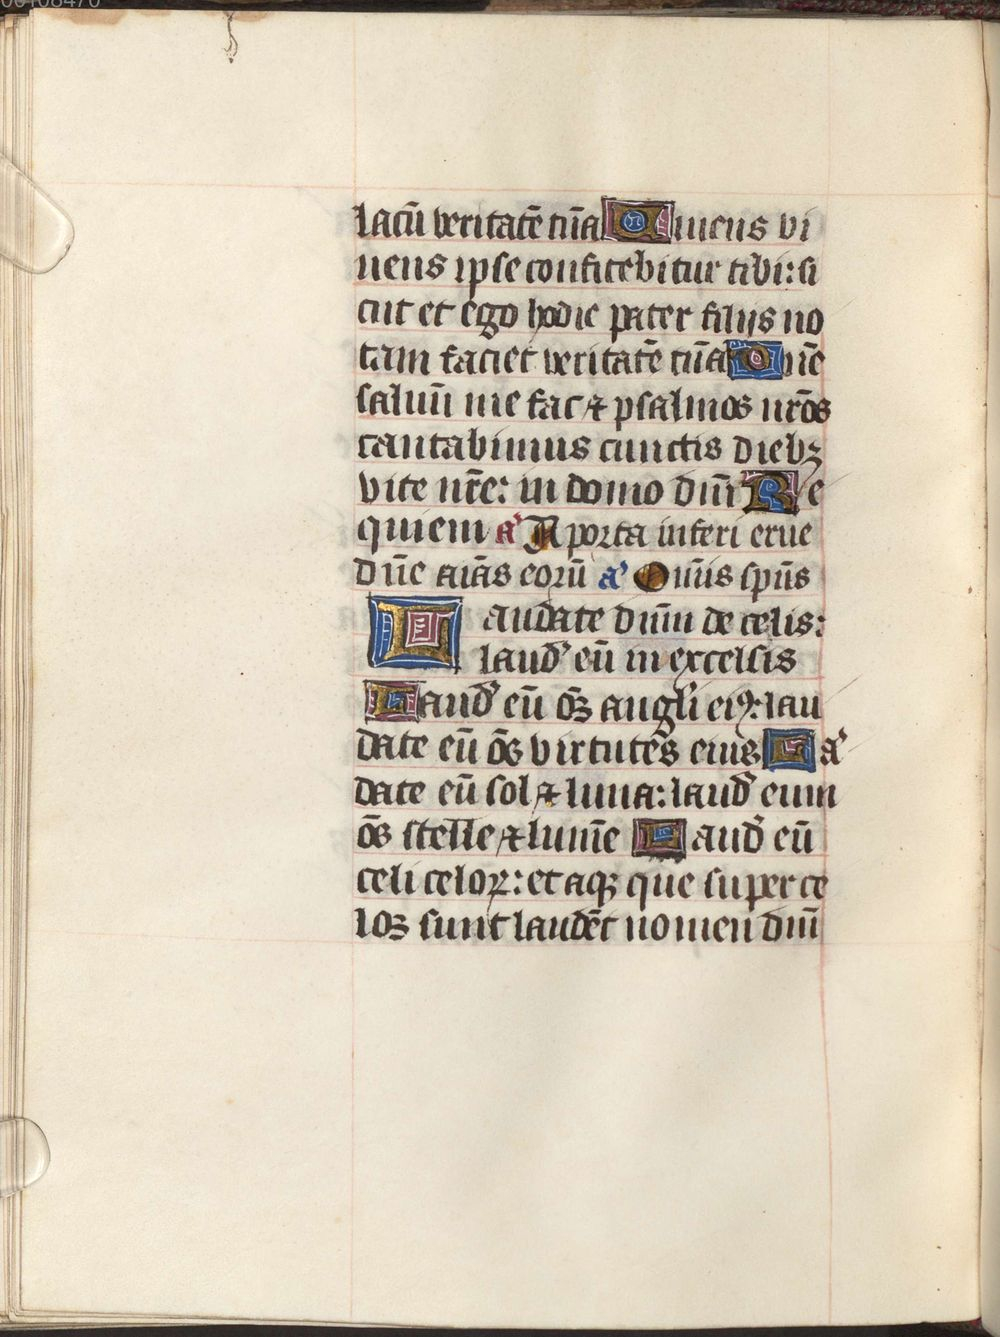 lacū veritatē tuā Viuens vi
uens ipse confitebitur tibi: si
cut et ego hodie pater filijs no
tam faciet veritatē tuā Dn̄e
saluū me fac ⁊ psalmos nr̄os
cantabimus cunctis diebꝫ
vite nr̄e: in domo dn̄i Re
quiem a᷒ A porta inferi erue
dn̄e aīas eorū a᷒ Om̄is sp̄us
Laudate dn̄m de celis:
laud̕ eū in excelsis
Laud̕ eū ōs angl̄i eiꝰ: lau
date eū ōs virtutes eius La᷒
date eū sol ⁊ luna: laud̕ eum
ōs stelle ⁊ lum̄e Laud̕ eū
celi celoꝝ: et aqꝫ que super ce
los sunt laudēt nomen dn̄i